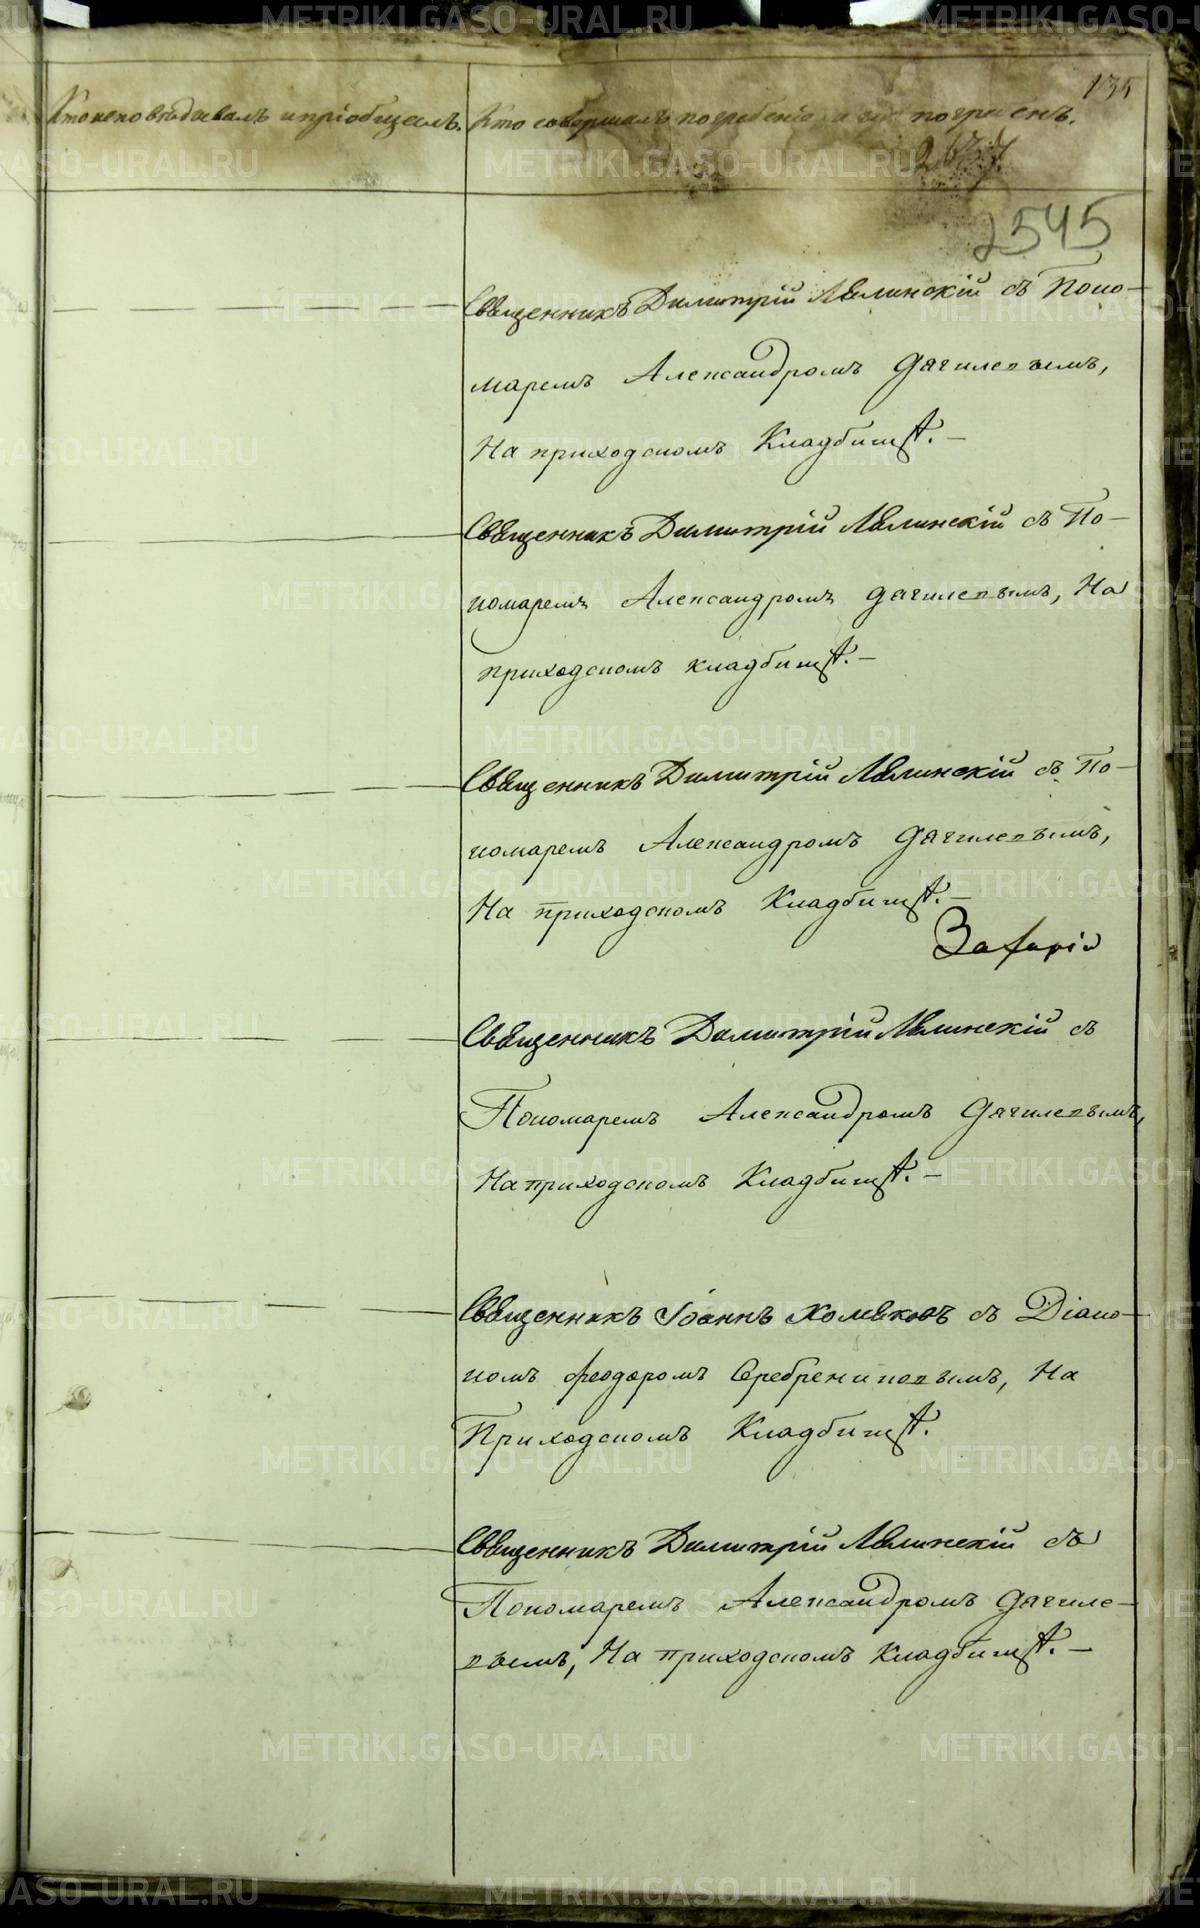 135
Кто исповѣдывалъ и пріобщалъ.
Кто совершалъ погребеніе и гдѣ погребенъ.
2637
2545
Священникъ Димитрій Явлинскій съ Поно-
маремъ Александромъ Дягилевымъ,
На приходскомъ Кладбищѣ. —
Священникъ Димитрій Явлинскій съ По-
номаремъ Александромъ Дягилевымъ, На
приходскомъ кладбищѣ. —
Священникъ Димитрій Явлинскій съ По-
номаремъ Александромъ Дягилевымъ,
На приходскомъ Кладбищѣ. —
Священникъ Димитрій Явлинскій съ
Пономаремъ Александромъ Дягилевымъ,
На приходскомъ Кладбищѣ. —
Священникъ Іоаннъ Хомяковъ съ Діако-
номъ Феодоромъ Серебрениковымъ, На
Приходскомъ Кладбищѣ.
Священникъ Димитрій Явлинскій съ
Пономаремъ Александромъ Дягиле-
вымъ, На приходскомъ кладбищѣ. —
METRIKI.GASO-URAL.RU